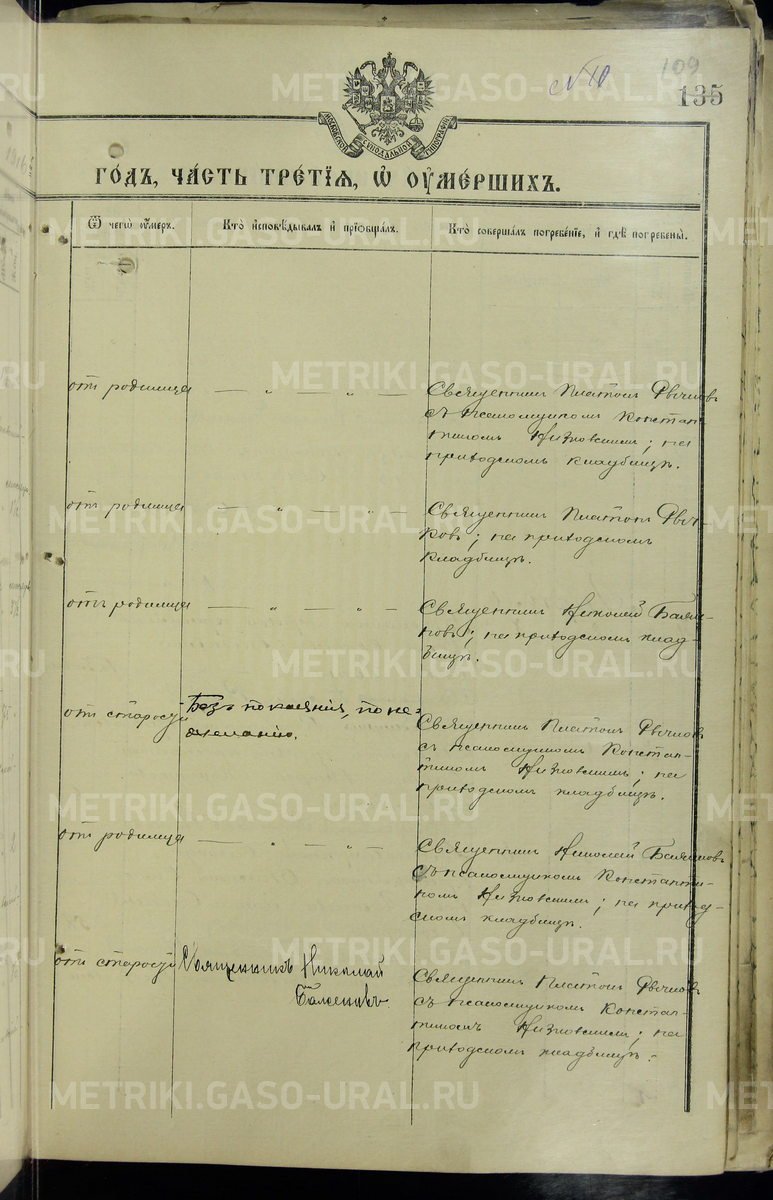 № 10
109
135
МОСКОВСКОЙ СѴНОДАЛЬНОЙ ТИПОГРАФІИ
ГО́ДЪ, ЧА́СТЬ ТРЕ́ТІѦ, Ѡ҆ ОУ҆МЕ́РШИХЪ.
Ѿ чегѡ̀ оу҆́меръ.
Кто̀ и҆сповѣ́дывалъ и҆ прїѡбща́лъ.
Кто̀ соверша́лъ погребе́нїе, и҆ гдѣ̀ погребены̀.
отъ родимца
— „ — „ —
Священникъ Платонъ
съ псаломщикомъ Констан-
тиномъ ; на
приходскомъ кладбищѣ.
отъ родимца
— „ — „ —
Священникъ Платонъ
ковъ; на приходскомъ
кладбищѣ.
отъ родимца
— „ — „ —
Священникъ Николай
новъ; на приходскомъ клад-
бищѣ.
отъ старости
Безъ покаянія, по не-
желанію.
Священникъ Платонъ
съ псаломщикомъ Констан-
тиномъ ; на
приходскомъ кладбищѣ.
отъ родимца
— „ — „ —
Священникъ Николай
съ псаломщикомъ Константи-
номъ ; на приход-
скомъ кладбищѣ.
отъ старости
Священникъ Николай
Священникъ Платонъ
съ псаломщикомъ Констан-
тиномъ ; на
приходскомъ кладбищѣ.
METRIKI.GASO-URAL.RU